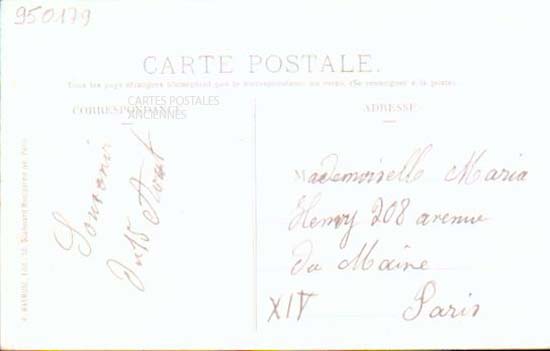 950179
CARTE POSTALE.
Tous les pays étrangers n'acceptent pas la correspondance au verso. (Se renseigner à la poste).
CORRESPONDANCE
CARTES POSTALES
ANCIENNES
ADRESSE
Souvenir
Du 15 Août
Mademoiselle Maria
Henry 208 avenue
du Maine
XIV Paris